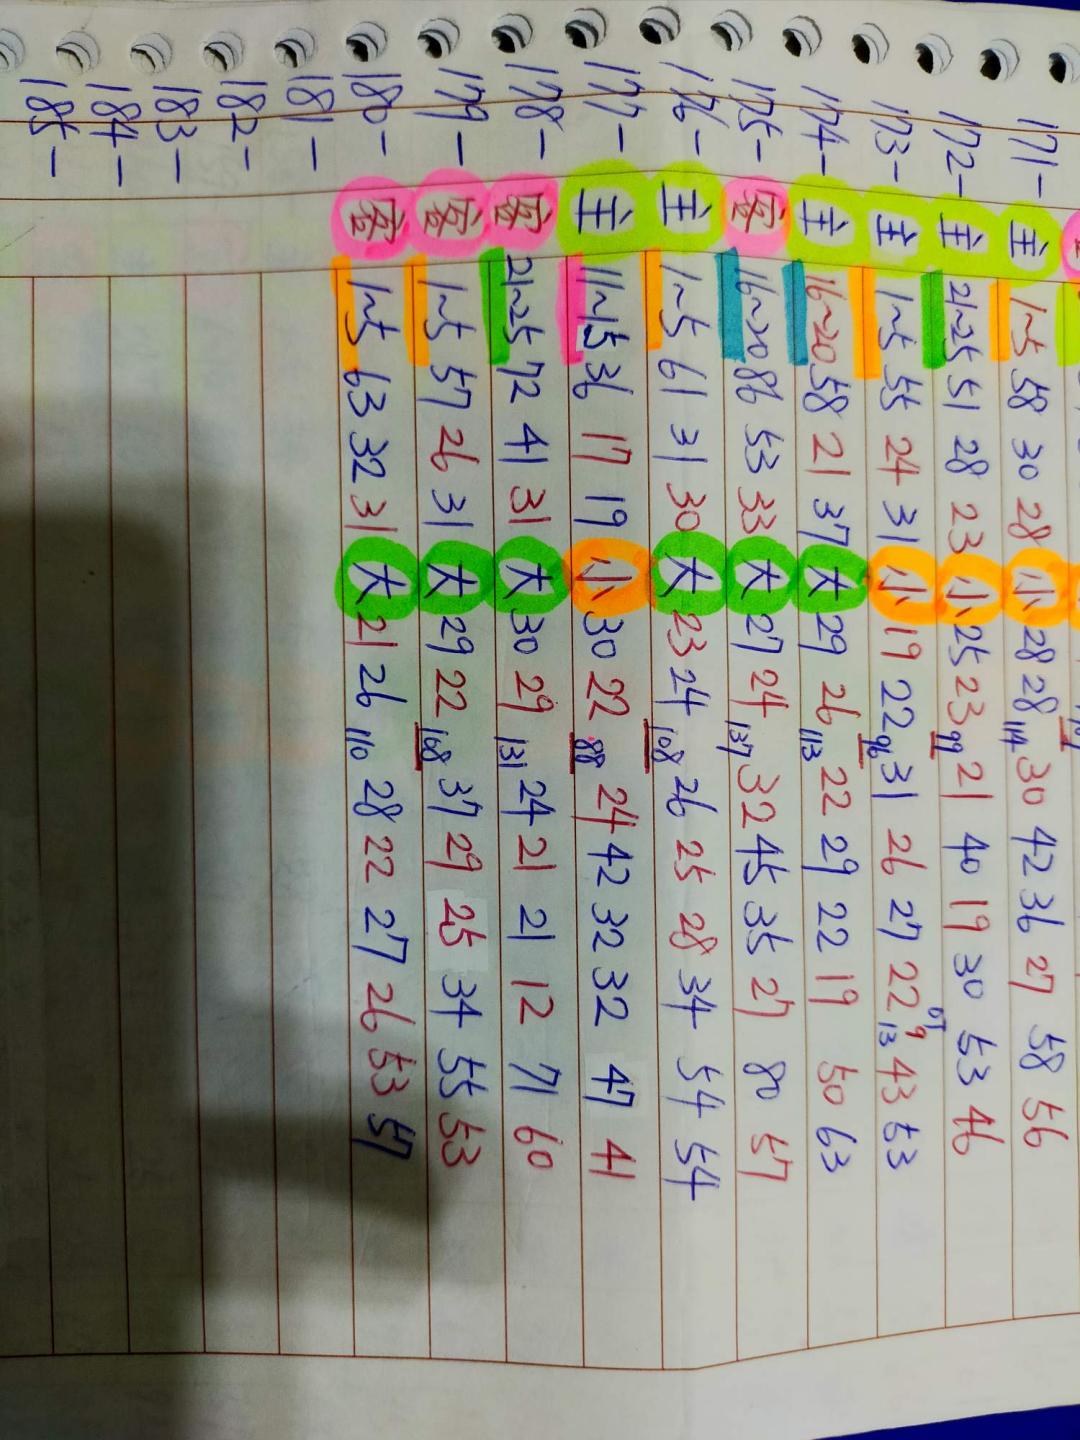 171- 主 1~5 58 30 28 小 28 28 114 30 42 36 27 58 56
172- 主 21~25 51 28 23 小 25 23 99 21 40 19 30 53 46
173- 主 1~5 55 24 31 小 19 22 96 31 26 27 22 9 13 43 53
174- 主 16~20 58 21 37 大 29 26 113 22 29 22 19 50 63
175- 客 16~20 86 53 33 大 27 24 137 32 45 35 27 80 57
176- 主 1~5 61 31 30 大 23 24 108 26 25 28 34 54 54
177- 主 11~15 36 17 19 小 30 22 88 24 42 32 32 47 41
178- 客 21~25 72 41 31 大 30 29 131 24 21 21 12 71 60
179- 客 1~5 57 26 31 大 29 22 108 37 29 25 34 55 53
180- 客 1~5 63 32 31 大 21 26 110 28 22 27 26 53 57
181-
182-
183-
184-
185-